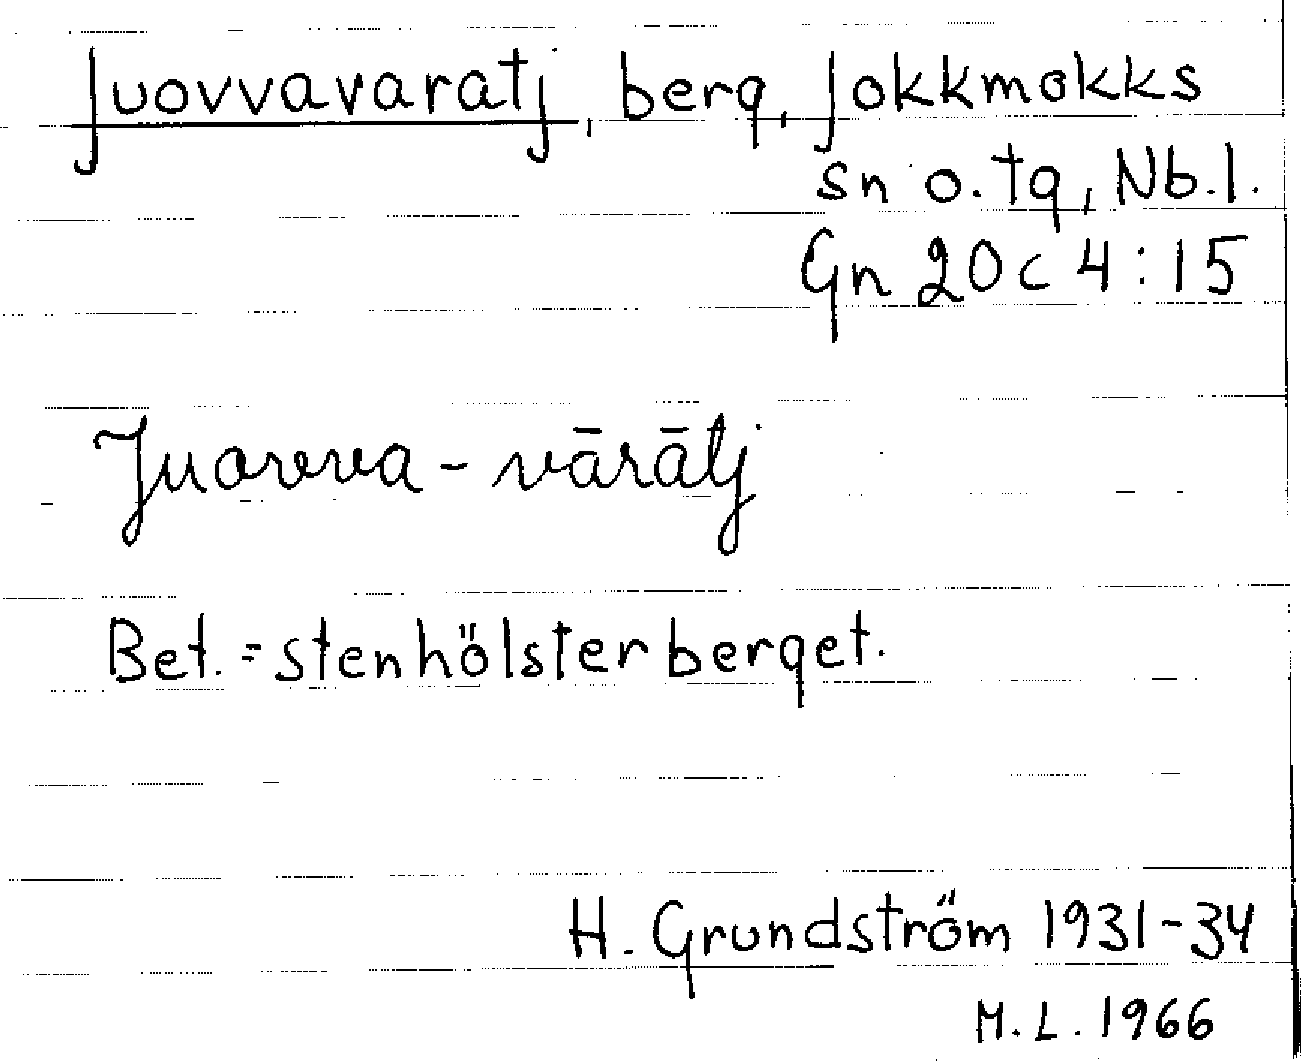 Juovvavaratj, berg, Jokkmokks
sn o. tg, Nb.l.
Gn 20c 4:15
Juovva-vārātj
Bet. = stenhölsterberget.
H. Grundström 1931-34
M.L. 1966